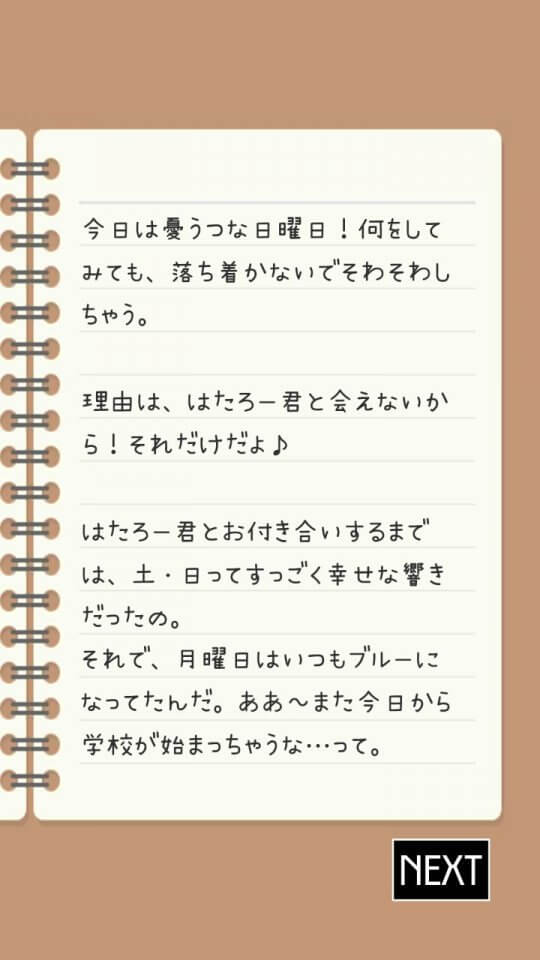 今日は憂うつな日曜日！何をして
みても、落ち着かないでそわそわし
ちゃう。
理由は、はたろー君と会えないか
ら！それだけだよ♪
はたろー君とお付き合いするまで
は、土・日ってすっごく幸せな響き
だったの。
それで、月曜日はいつもブルーに
なってたんだ。ああ〜また今日から
学校が始まっちゃうな…って。
NEXT